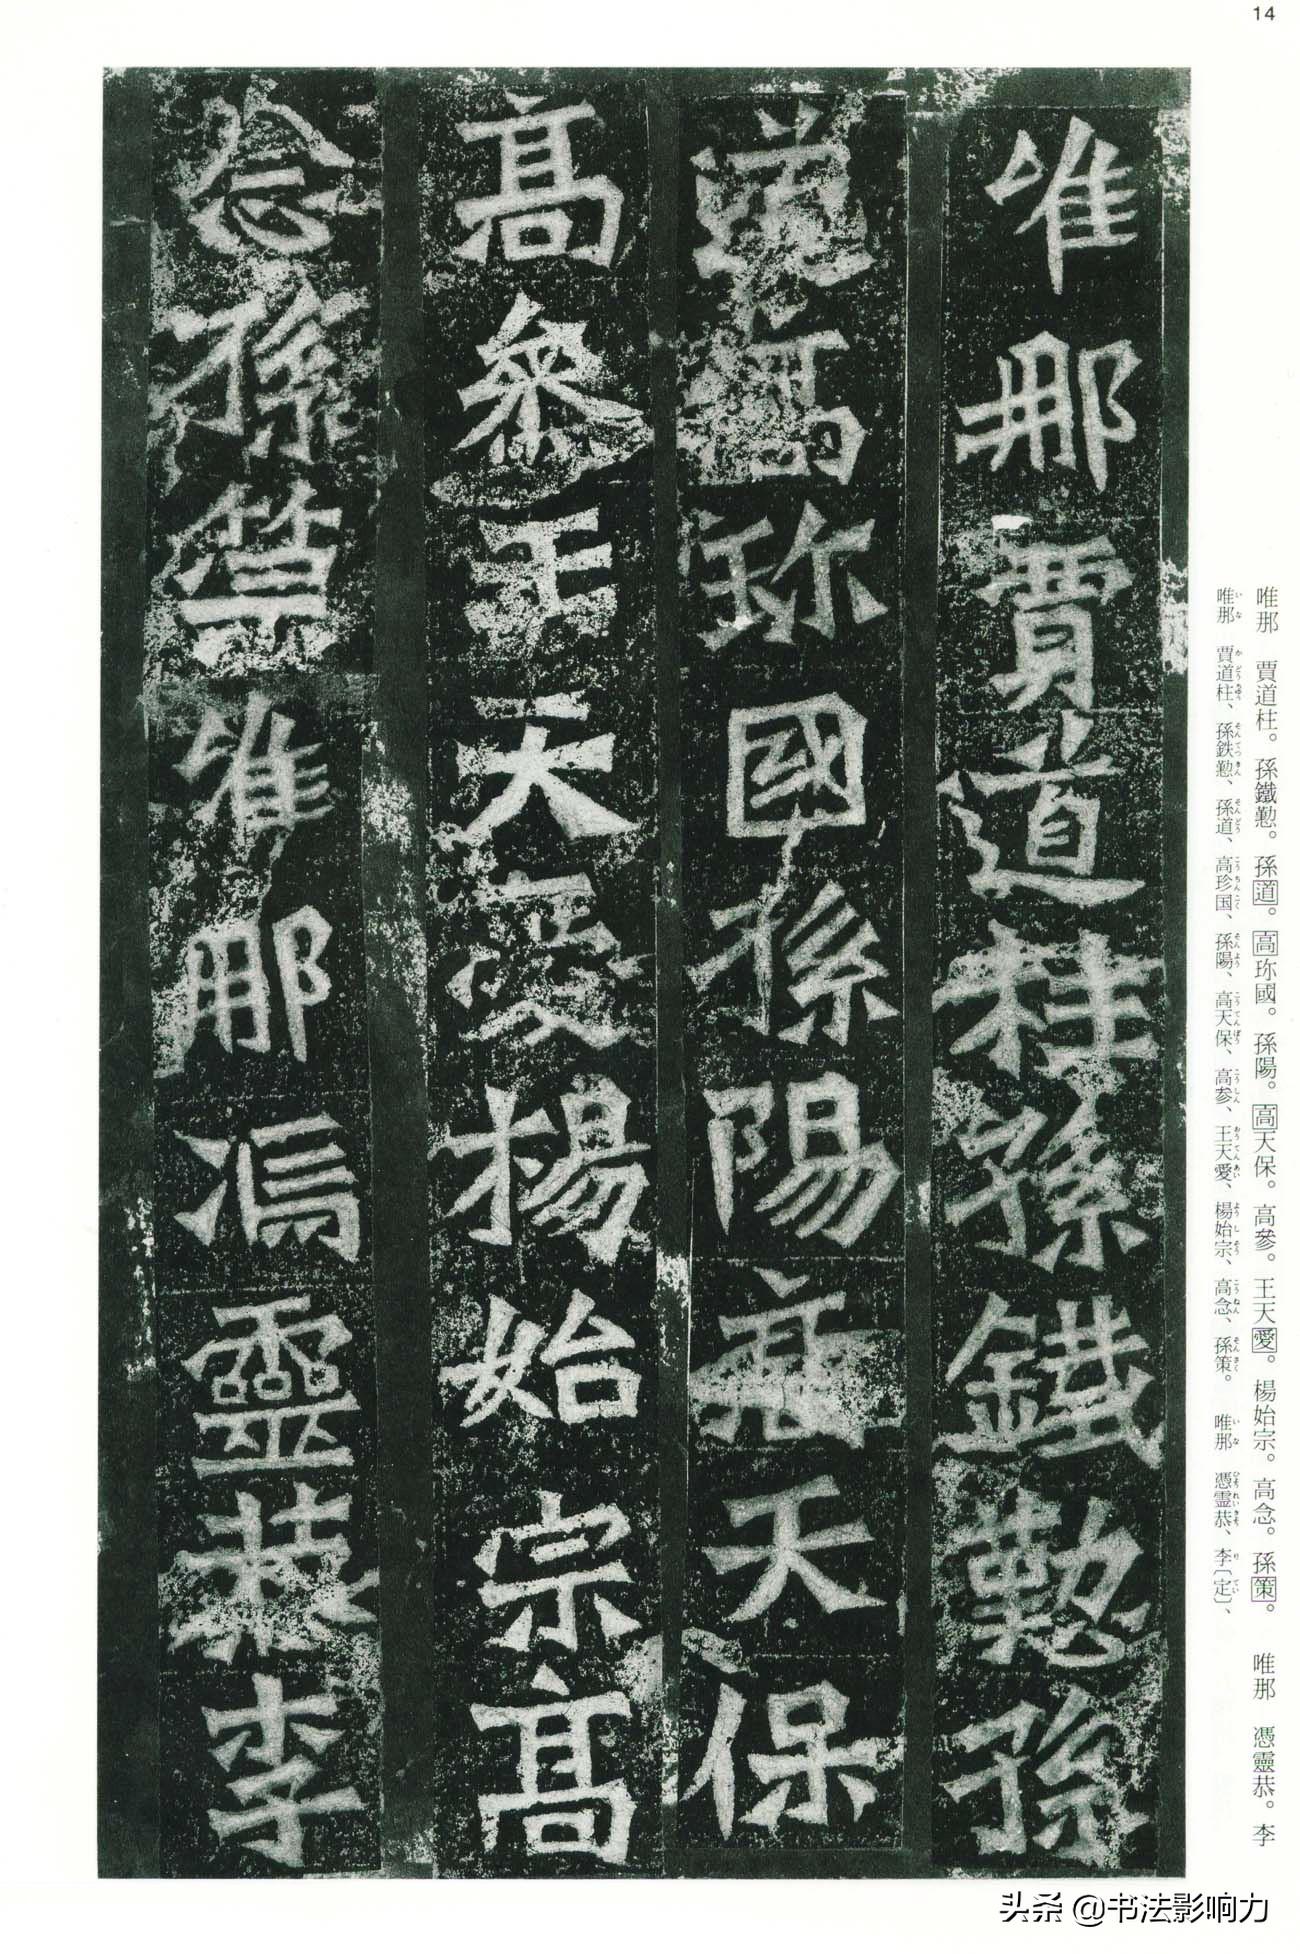 14
唯那賈道柱孫鐵懃孫
道高珎國孫陽高天保
高參王天愛楊始宗高
念孫策唯那馮靈恭李
唯那　賈道柱。孫鐵懃。孫道。高珎國。孫陽。高天保。高參。王天愛。楊始宗。高念。孫策。　唯那　憑靈恭。李
唯那　賈道柱、孫鉄懃、孫道、高珍国、孫陽、高天保、高参、王天愛、楊始宗、高念、孫策。　唯那　憑霊恭、李〔定〕、
头条 @书法影响力